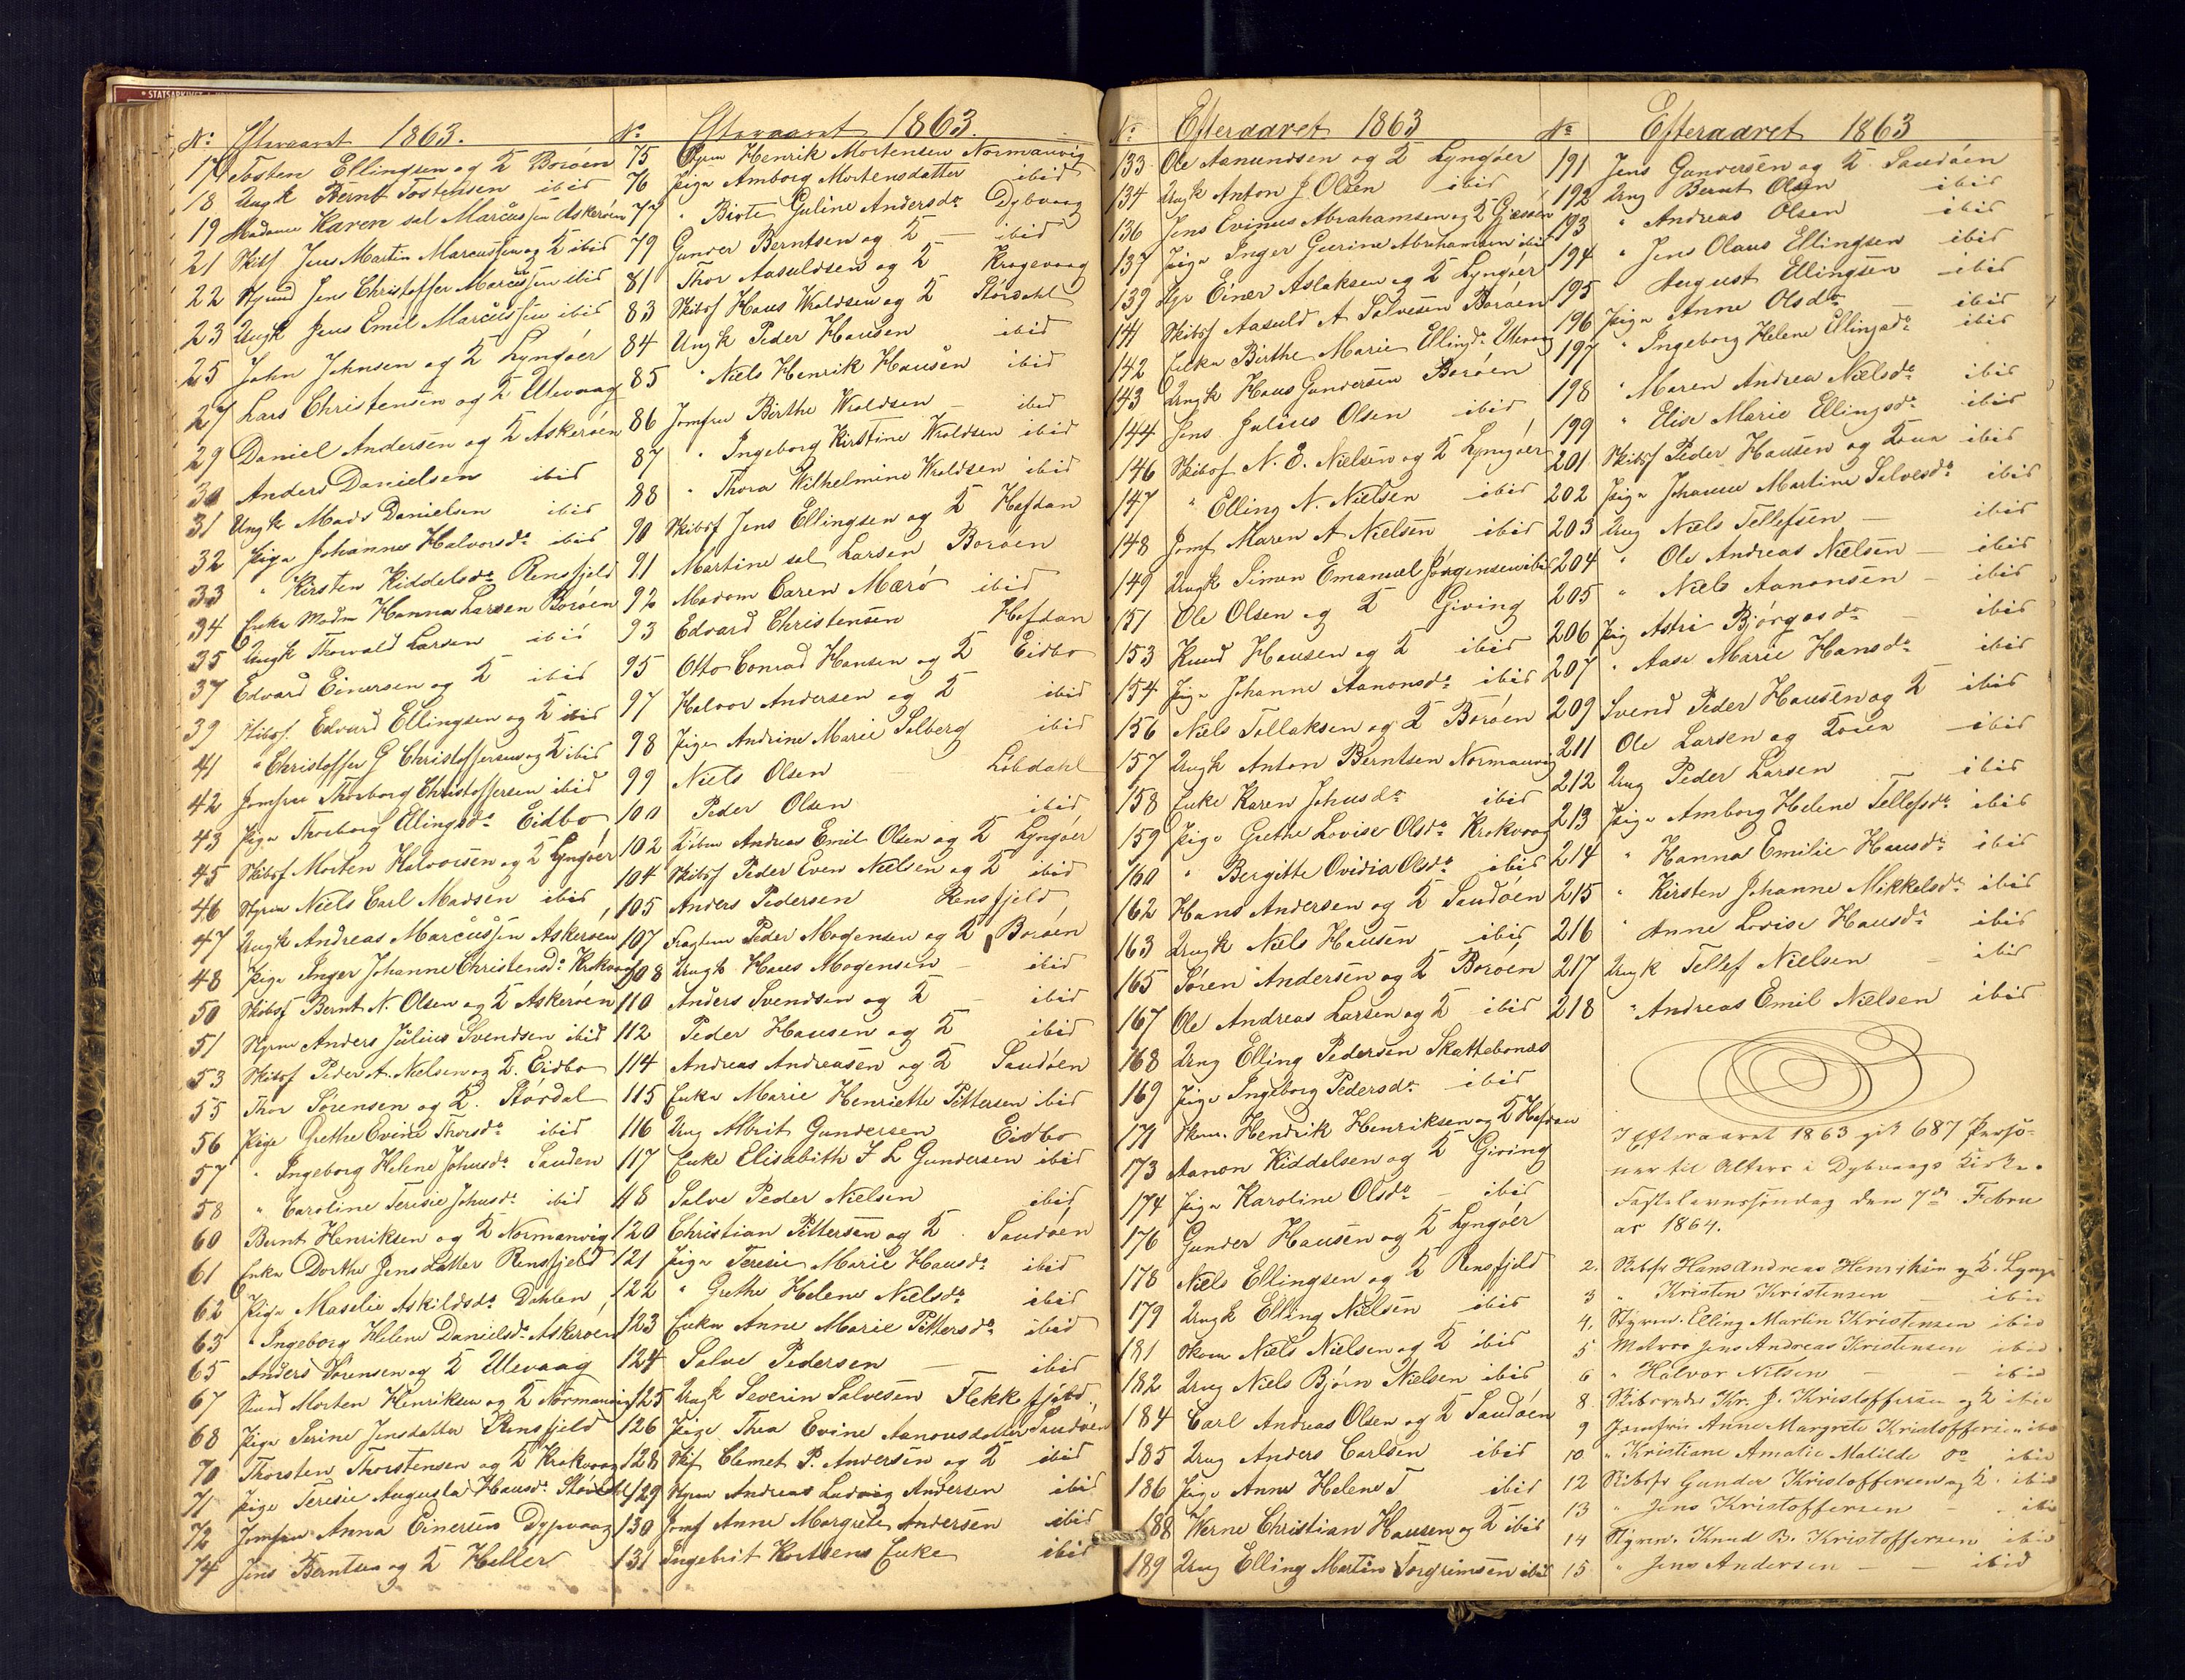 STATSARKIVET I
No Efteraaret 1863.
17 Tosten Ellingsen og K Borøen
18 Ungk Bernt Tostensen ibid
19 Madame Karen sal Marcussen Askerøen
21 Skibsf Jens Martin Marcussen og K ibid
22 Styrmd Jens Christoffer Marcussen ibid
23 Ungk Jens Emil Marcussen ibid
25 John Johnsen og K Lyngøer
27 Lars Christensen og K Ulevaag
29 Daniel Andersen og K Askerøen
30 Anders Danielsen ibid
31 Ungk Mads Danielsen ibid
32 Pige Johanne Halvorsdr ibid
33 " Kirsten Kiddelsdr Rensfjeld
34 Enke Madm Hanna Larsen Borøen
35 Ungk Thorvald Larsen ibid
37 Edvard Einersen og K ibid
39 Skibsf. Edvard Ellingsen og K ibid
41 " Christoffer G Christoffersen og K ibid
42 Jomfrue Thorborg Christoffersen ibid
43 Pige Thorborg Ellingsdr Eidbo
45 Skibsf Morten Halvorsen og K Lyngøer
46 Styrm Niels Carl Madsen ibid
47 Ungk Andreas Marcussen Askerøen
48 Pige Inger Johanne Christensdr Krokvaag
50 Skibsf Bernt N. Olsen og K Askerøen
51 Styrm Anders Julius Svendsen ibid
53 Skibsf Peder A. Nielsen og K. Eidbo
55 Thor Sørensen og K. Stórdal
56 Pige Grethe Evine Thorsdr ibid
57 " Ingeborg Helene Johnsdr Sauden
58 " Caroline Teresie Johnsdr ibid
60 Bernt Henriksen og K Normanvig
61 Enke Dorthe Jensdatter Rensfjeld
62 Pige Maselie Askildsdr Dahlen
63 " Ingeborg Helene Danielsdr Askerøen
65 Anders Sørensen og K Ulevaag
67 Morten Henriksen og K Normanvig
68 Pige Serine Jensdatter Rensfjeld
70 Thorsten Thorstensen og K Krokvaag
71 Pige Teresie Augusta Hansdr Stórdal
72 Jomfrue Anna Einersen Dypvaag
74 Jens Berntsen og K Heller
No Efteraaret 1863.
75 Styrm Henrik Mortensen Normanvig
76 Pige Amborg Mortensdatter ibid
77 " Birte Guline Andersdr Dybvaag
79 Gunder Berntsen og K — ibid
81 Thor Aasuldsen og K Kragevaag
83 Skibsf Hans Wroldsen og K Stórdahl
84 Ungk Peder Hansen ibid
85 " Niels Henrik Hansen ibid
86 Jomfrue Birthe Wroldsen — ibid
87 " Ingeborg Kirstine Wroldsen ibid
88 " Thora Wilhelmine Wroldsen ibid
90 Skibsf Jens Ellingsen og K Hafdan
91 Martine sal Larsen Borøen
92 Madam Caren Mærø ibid
93 Edvard Christensen Hafdan
95 Otto Conrad Hansen og K Eidbo
97 Halvor Andersen og K ibid
98 Pige Andrine Marie Solberg ibid
99 Niels Olsen Lóbdahl
100 Peder Olsen ibid
102 Andreas Emil Olsen og K Lyngøer
104 Skibsf Peder Even Nielsen og K ibid
105 Anders Pedersen Rensfjeld
107 Peder Mogensen og K Borøen
108 Ungk Hans Mogensen — ibid
110 Anders Svendsen og K — ibid
112 Peder Hansen og K ibid
114 Andreas Andreasen og K Saudøen
115 Enke Marie Henriette Pettersen ibid
116 Ung Albrit Gundersen Eidbo
117 Enke Elisabith I L Gundersen ibid
118 Salve Peder Nielsen ibid
120 Christian Pittersen og K Saudøen
121 Pige Teresie Marie Hansdr ibid
122 " Grethe Helene Nielsdr ibid
123 Enke Anne Marie Pittersdr ibid
124 Salve Pedersen — ibid
125 Ungk Severin Salvesen Flekkefjord
126 Pige Thea Evine Aanonsdatter Saudøen
128 Skif Clemet P. Andersen og K ibid
129 Styrm Andreas Ludvig Andersen ibid
130 Jomf Anne Margrete Andersen ibid
131 Ingebrit Knutsens Enke ibid
No Efteraaret 1863
133 Ole Aanundsen og K Lyngøer
134 Ungk Anton J Olsen ibid
136 Jens Evinus Abrahamsen og K Gjessøen
137 Pige Inger Gurine Abrahamsen ibid
139 Einer Aslaksen og K Lyngøer
141 Skibsf Aasuld A Salvesen Borøen
142 Enke Birthe Marie Ellingsdr Ulevaag
143 Ungk Hans Gundersen Borøen
144 Jens Julius Olsen ibid
146 Skibsf N. E. Nielsen og K Lyngøer
147 " Elling N. Nielsen ibid
148 Jomf Maren A Nielsen ibid
149 Ungk Simen Emanuel Jørgensen ibid
151 Ole Olsen og K Giving
153 Knud Hansen og K ibid
154 Pige Johanne Aanonsdr ibid
156 Niels Tollaksen og K Borøen
157 Ungk Anton Berntsen Normanvig
158 Enke Karen Johnsdr ibid
159 Pige Grethe Lovise Olsdr Krokvaag
160 " Bergitte Ovidia Olsdr ibid
162 Hans Andersen og K Saudøen
163 Ungk Niels Hansen ibid
165 Søren Andersen og K Borøen
167 Ole Andreas Larsen og K ibid
168 Ung Elling Pedersen Skattebonæs
169 Pige Ingeborg Pedersdr ibid
171 Skom. Hendrik Henriksen og K Hafdan
173 Aanon Kiddelsen og K Giving
174 Pige Karoline Olsdr — ibid
176 Gunder Hansen og K Lyngøer
178 Niels Ellingsen og K Rensfjeld
179 Ungk Elling Nielsen ibid
181 Skom Niels Nielsen og K ibid
182 Ung Niels Bjørn Nielsen ibid
184 Carl Andreas Olsen og K Saudøen
185 Ung Anders Carlsen ibid
186 Pige Anne Helene T ibid
188 Werne Christian Hansen og K ibid
189 Ung Elling Martin Torgrimsen ibid
No Efteraaret 1863
191 Jens Gundersen og K Saudøen
192 Ung Bernt Olsen ibid
193 " Andreas Olsen ibid
194 " Jens Olaus Ellingsen ibid
195 " August Ellingsen ibid
196 Pige Anne Olsdr — ibid
197 " Ingeborg Helene Ellingsdr ibid
198 " Maren Andrea Nielsdr ibid
199 " Elise Marie Ellingsdr ibid
201 Skibsf Peder Hansen og Kone ibid
202 Pige Johanne Martine Salvesdr ibid
203 Ung Niels Tellefsen — ibid
204 " Ole Andreas Nielsen — ibid
205 " Niels Aanonsen — ibid
206 Pig Astri Bjørgosdr — ibid
207 " Aase Marie Hansdr ibid
209 Svend Peder Hansen og K ibid
211 Ole Larsen og Kone — ibid
212 Ung Peder Larsen — ibid
213 Pige Amborg Helene Tellefsdr ibid
214 " Hanna Emilie Hansdr ibid
215 " Kirsten Johanne Mikkelsdr ibid
216 " Anne Lovise Hansdr ibid
217 Ungk Tellef Nielsen — ibid
218 " Andreas Emil Nielsen ibid
I Efteraaret 1863 gik 687 Perso-
ner til Alters i Dybvaags Kirke.
Fastelavnssøndag den 7de Febru
ar 1864.
2. Skibsfr Hans Andreas Henriksen og K. Lyngø
3 " Kristen Kristensen — ibid
4. Styrm. Elling Martin Kristensen ibid
5 Matros Jens Andreas Kristensen ibid
6 " Halvor Nilsen — ibid
8. Kr. J. Kristoffersen og K ibid
9 Jomfru Anne Margrete Kristoffersen ibid
10 " Kristiane Amalie Matilde do ibid
12 Skibsfr Gunder Kristoffersen og K. ibid
13 " Jens Kristoffersen — ibid
14 Styrm. Knud B. Kristoffersen ibid
15 " Jens Andersen — — ibid